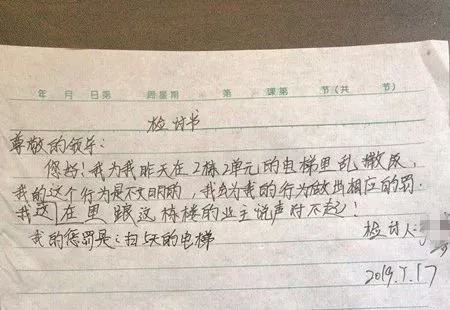 年 月 日 第 周 星期 第 课 第 节 (共 节)
检讨书
尊敬的领导:
您当!我为我昨天在2栋2单元的电梯里乱撒尿,
我的这个行为是不文明的,我会为我的行为做出相应的罚.
我这在里跟这栋楼的业主说声对不起!
我的惩罚是:扫5天的电梯
检讨人:
2019.7.17